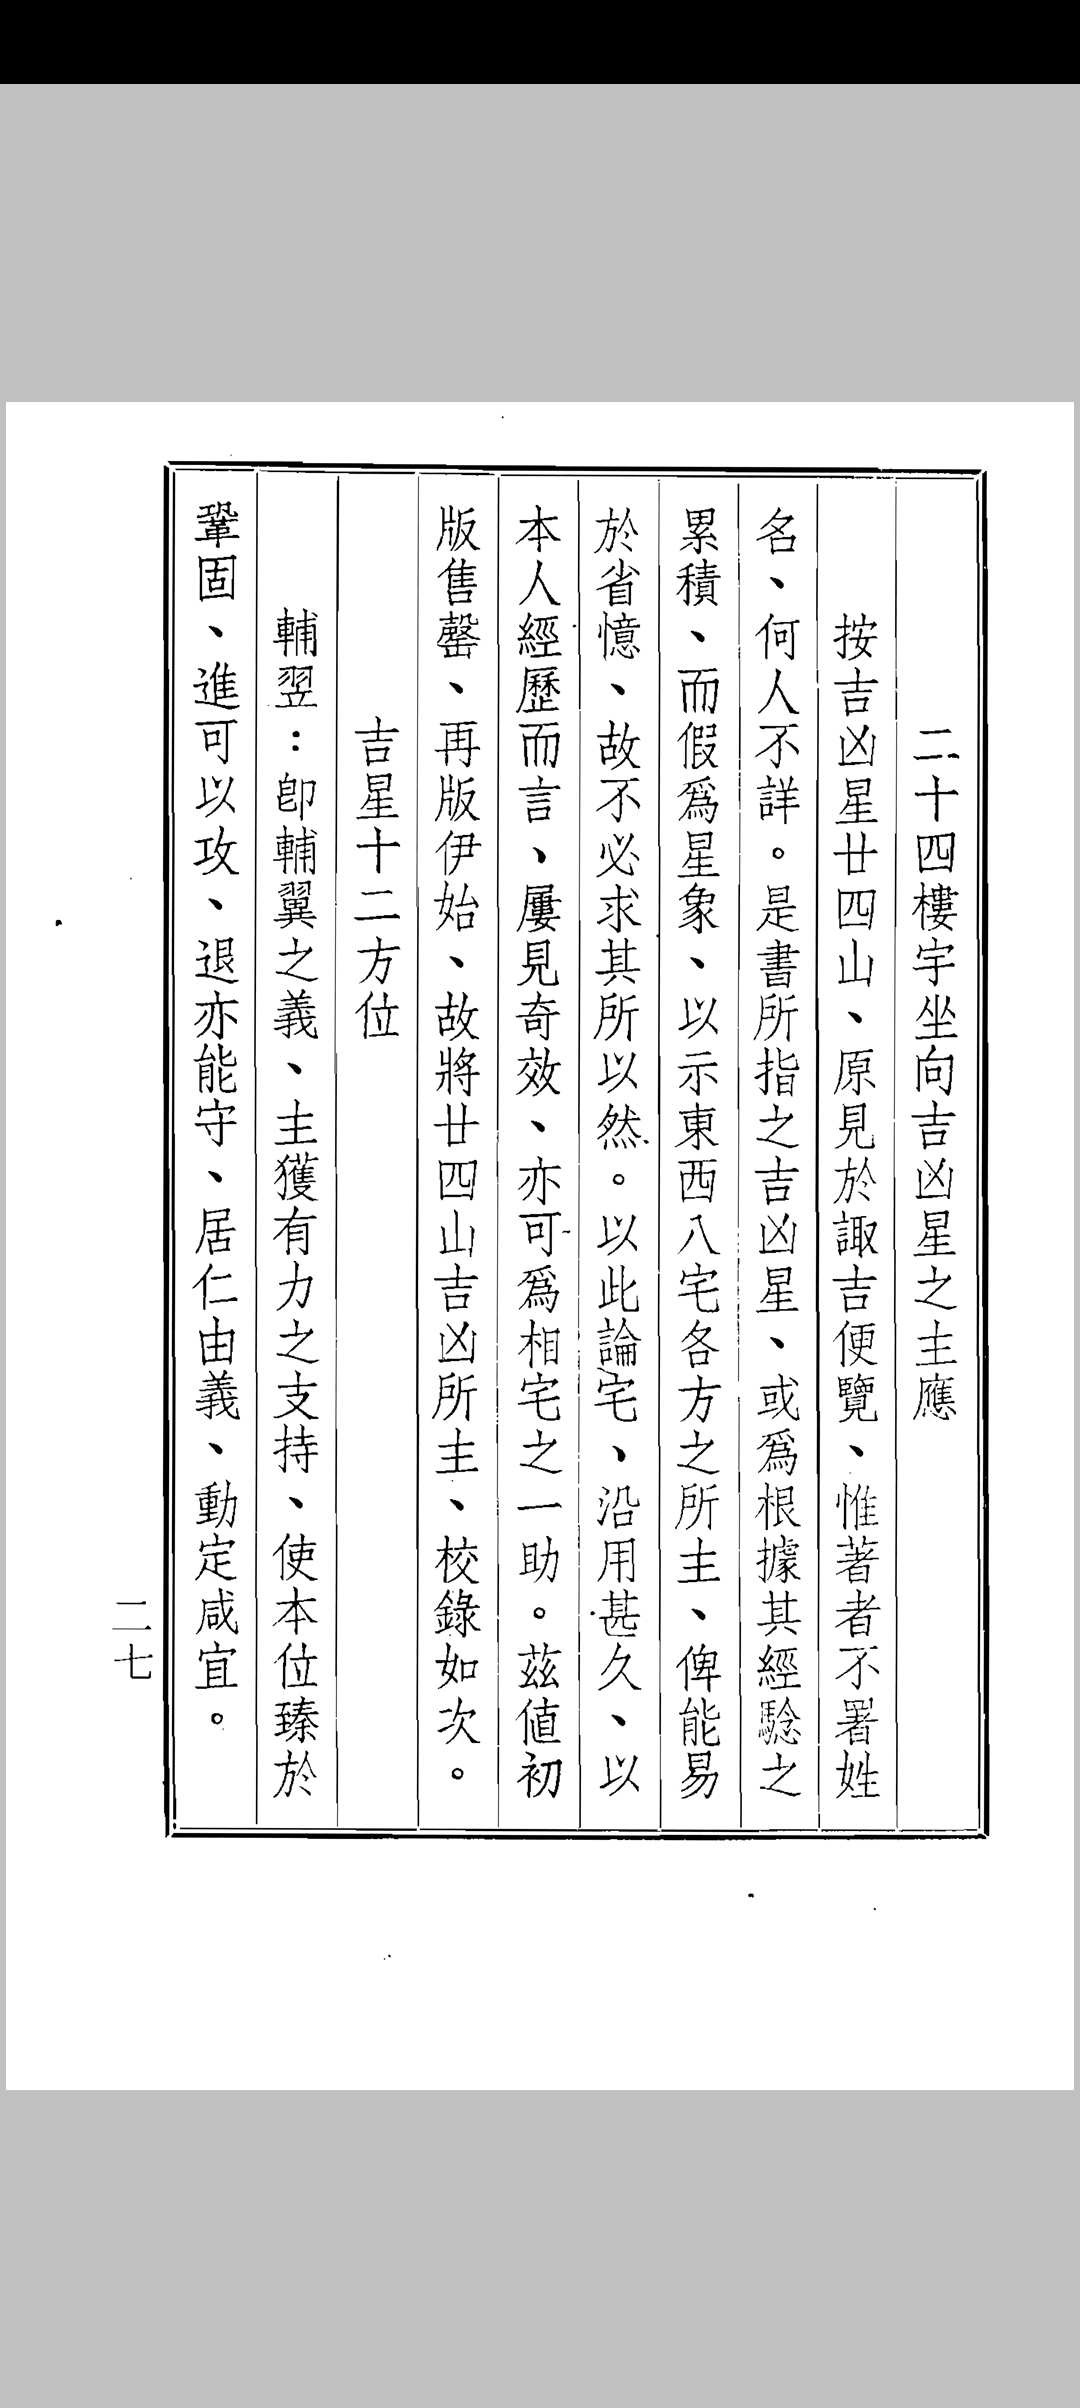 二十四樓宇坐向吉凶星之主應
按吉凶星廿四山、原見於諏吉便覽、惟著者不署姓
名、何人不詳。是書所指之吉凶星、或爲根據其經驗之
累積、而假爲星象、以示東西八宅各方之所主、俾能易
於省憶、故不必求其所以然。以此論宅、沿用甚久、以
本人經歷而言、屢見奇效、亦可爲相宅之一助。茲値初
版售罄、再版伊始、故將廿四山吉凶所主、校錄如次。
吉星十二方位
輔翌：卽輔翼之義、主獲有力之支持、使本位臻於
鞏固、進可以攻、退亦能守、居仁由義、動定咸宜。
二七